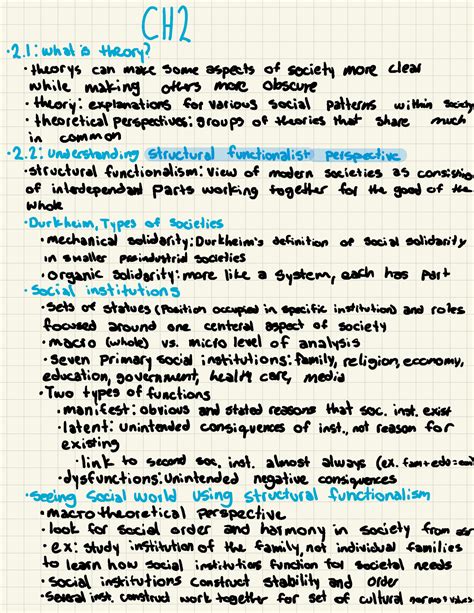 CH2
•2.1: what is theory?
•theorys can make some aspects of society more clear
while making others more obscure
•theory: explanations for various social patterns within society
•theoretical perspectives: groups of theories that share much
in common
•2.2: understanding structural functionalist perspective
•structural functionalism: view of modern societies as consisting
of interdependant parts working together for the good of the
whole
•Durkheim, Types of societies
•mechanical solidarity: Durkheim's definition of social solidarity
in smaller preindustrial societies
•organic solidarity: more like a system, each has part
•Social institutions
•sets of statues (position occupied in specific institution) and roles
focused around one centeral aspect of society
•macro (whole) vs. micro level of analysis
•seven primary social institutions: family, religion, economy,
education, government, health care, media
•Two types of functions
•manifest: obvious and stated reasons that soc. inst. exist
•latent: unintended consiquences of inst., not reason for
existing
•link to second soc. inst. almost always (ex. fam+edo=
•dysfunctions: unintended negative consiquences
•Seeing Social world using structural functionalism
•macrotheoretical perspective
•look for social order and harmony in society from
•ex: study institution of the family, not individual families
to learn how social institutions function for societal needs
•social institutions construct stability and order
•several inst. construct work together for set of cultural norms+values